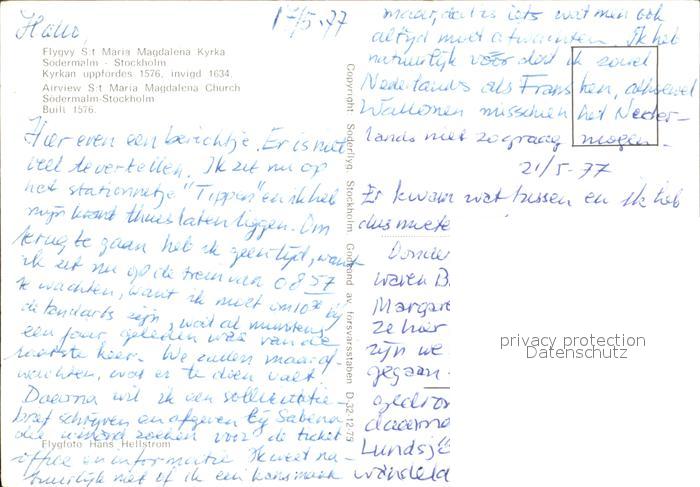 Hallo,
17/5-77
Flygvy S:t Maria Magdalena Kyrka
Södermalm - Stockholm
Kyrkan uppfördes 1576, invigd 1634.
Airview S:t Maria Magdalena Church
Södermalm-Stockholm
Built 1576.
Hier even een berichtje. Er is niet
veel te vertellen. Ik zit nu op
het stationnetje "Tippen" en ik heb
mijn krant thuis laten liggen. Om
terug te gaan heb ik geen tijd, want
ik zit nu op de trein van 0857
te wachten, want ik moet om 10 bij
de tandarts zijn, wat al minstens
een jaar geleden was van de
laatste keer. We zullen maar af-
wachten, wat er te doen valt.
Daarna wil ik een sollicitatie-
brief schrijven en afgeven bij Sabena
die iemand zoeken voor de ticket
office en informatie. Ik weet na-
tuurlijk niet of ik een kans maak
Flygfoto Hans Hellström
Copyright: Söderflyg, Stockholm Godkänd av försvarsstaben D-32-12/75
maar, dat is iets wat men ook
altijd moet afwachten. Ik heb
natuurlijk vóór dat ik zowel
Nederlands als Frans ken, alhoewel
Wallonen misschien het Neder-
lands niet zo graag mogen.
21/5-77
Er kwam wat tussen en ik heb
dus moete
Donder
waren B.
Margare
ze hier
zijn we
gegaan.
gedron
daarna
Lundsjö
wandela
privacy protection
Datenschutz